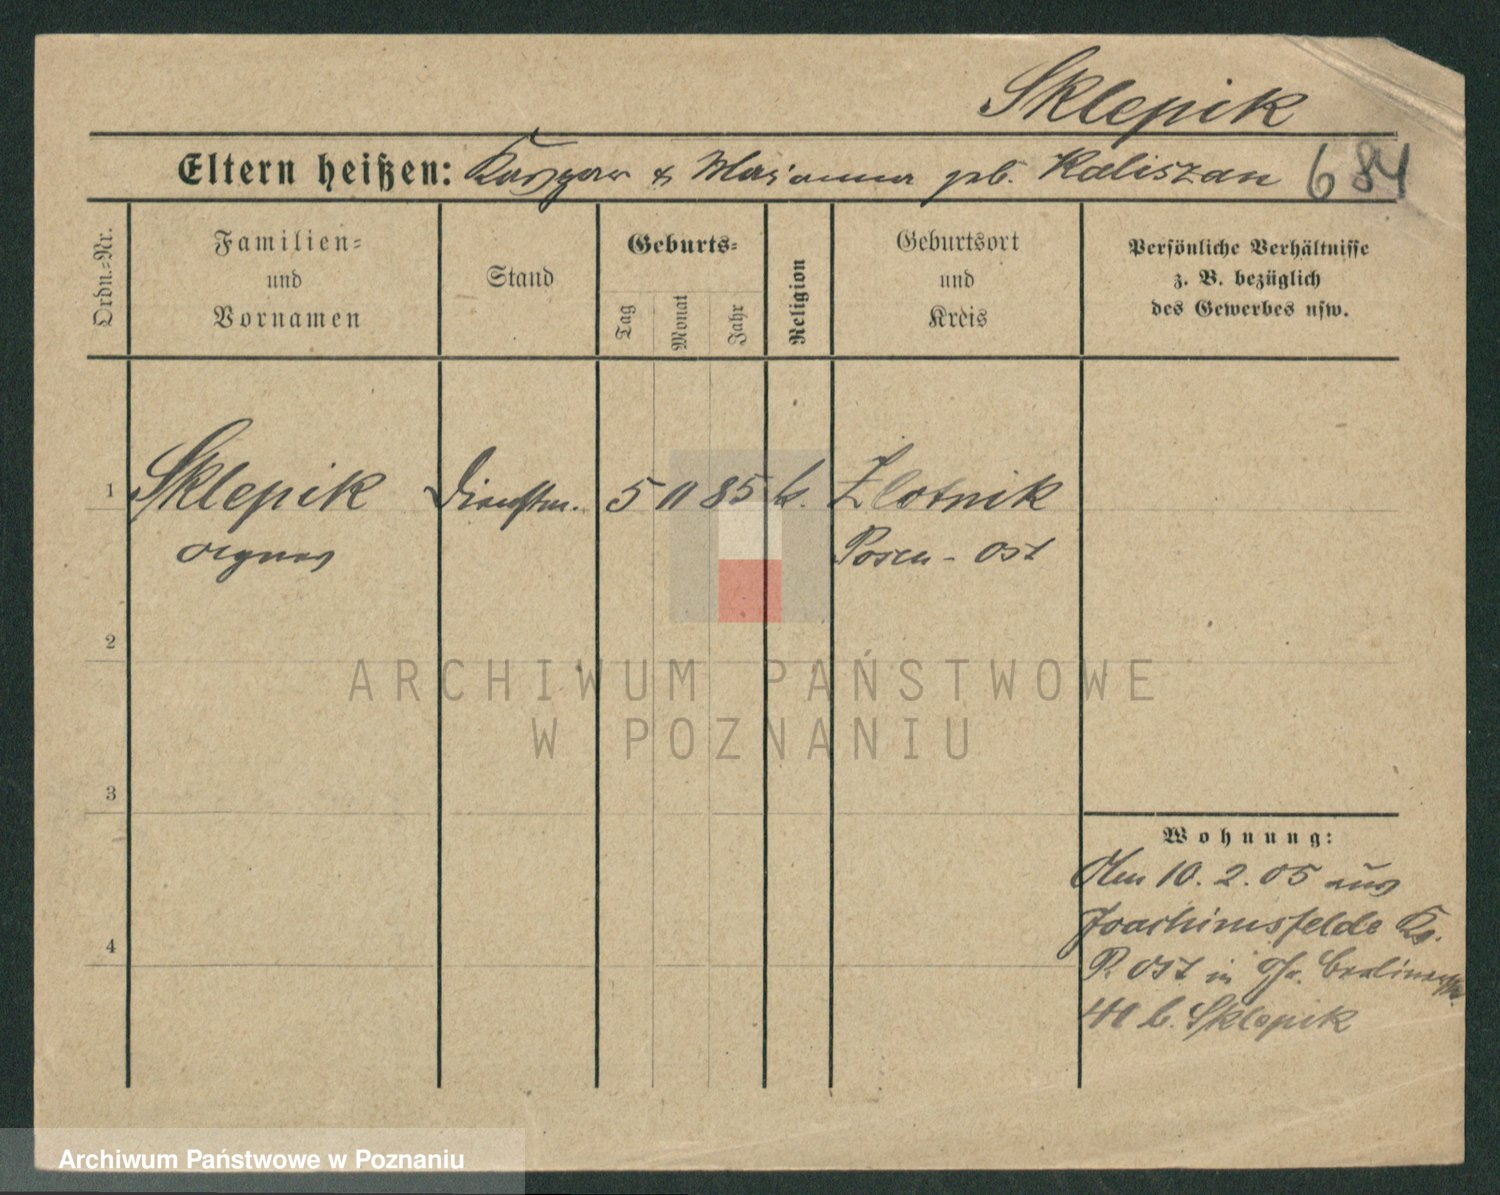 Sklepik
Eltern heißen: Kasper & Marianna geb. Kaliszan 684
Ordn.-Nr.
Familien- und Vornamen
Stand
Geburts-
Tag
Monat
Jahr
Religion
Geburtsort und Kreis
Persönliche Verhältnisse z. B. bezüglich des Gewerbes usw.
1 Sklepik Dienstm. 5 11 85 k. Zlotnik
Agnes Posen-Ost
2
3
4
Wohnung:
Am 10. 2. 05 aus
Joachimsfelde Kr.
P. Ost in Berlinerstr.
40 b. Sklepik
ARCHIWUM PAŃSTWOWE
W POZNANIU
Archiwum Państwowe w Poznaniu